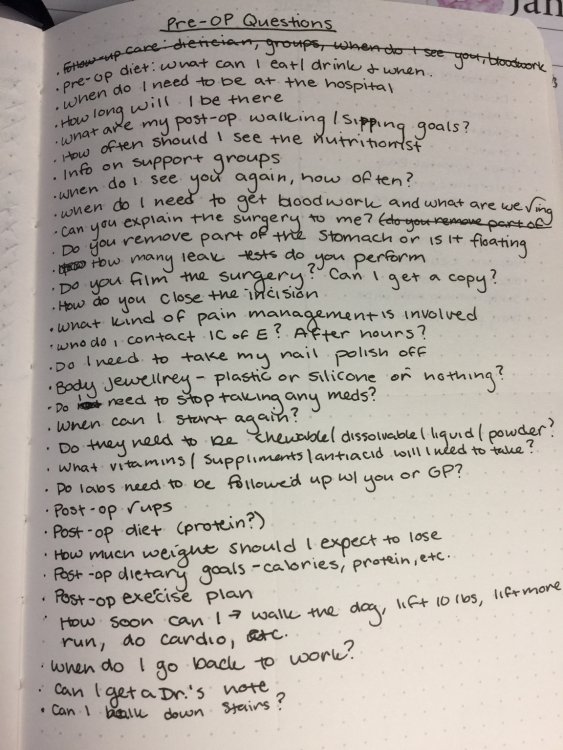 Jan
Pre-OP Questions
· Follow-up care: dietician, groups, when do I see you, bloodwork
· Pre-op diet: what can I eat/drink & when.
· When do I need to be at the hospital
· How long will I be there
· What are my post-op walking/sipping goals?
· How often should I see the nutritionist
· Info on support groups
· When do I see you again, how often?
· When do I need to get bloodwork and what are we √ing
· Can you explain the surgery to me? (do you remove part of
· Do you remove part of the stomach or is it floating
· How many leak tests do you perform
· Do you film the surgery? Can I get a copy?
· How do you close the incision
· What kind of pain management is involved
· Who do i contact IC of E? After hours?
· Do I need to take my nail polish off
· Body Jewellrey - plastic or silicone or nothing?
· Do I need to stop taking any meds?
· When can I start again?
· Do they need to be chewable/dissolvable/liquid/powder?
· What vitamins/suppliments/antiacid will I need to take?
· Do labs need to be followed up w/ you or GP?
· Post-op √ups
· Post-op diet (protein?)
· How much weight should I expect to lose
· Post-op dietary goals - calories, protein, etc.
· Post-op execise plan
· How soon can I → walk the dog, lift 10 lbs, lift more
run, do cardio, etc.
· When do I go back to work?
· Can I get a Dr.'s note
· Can I walk down stairs?